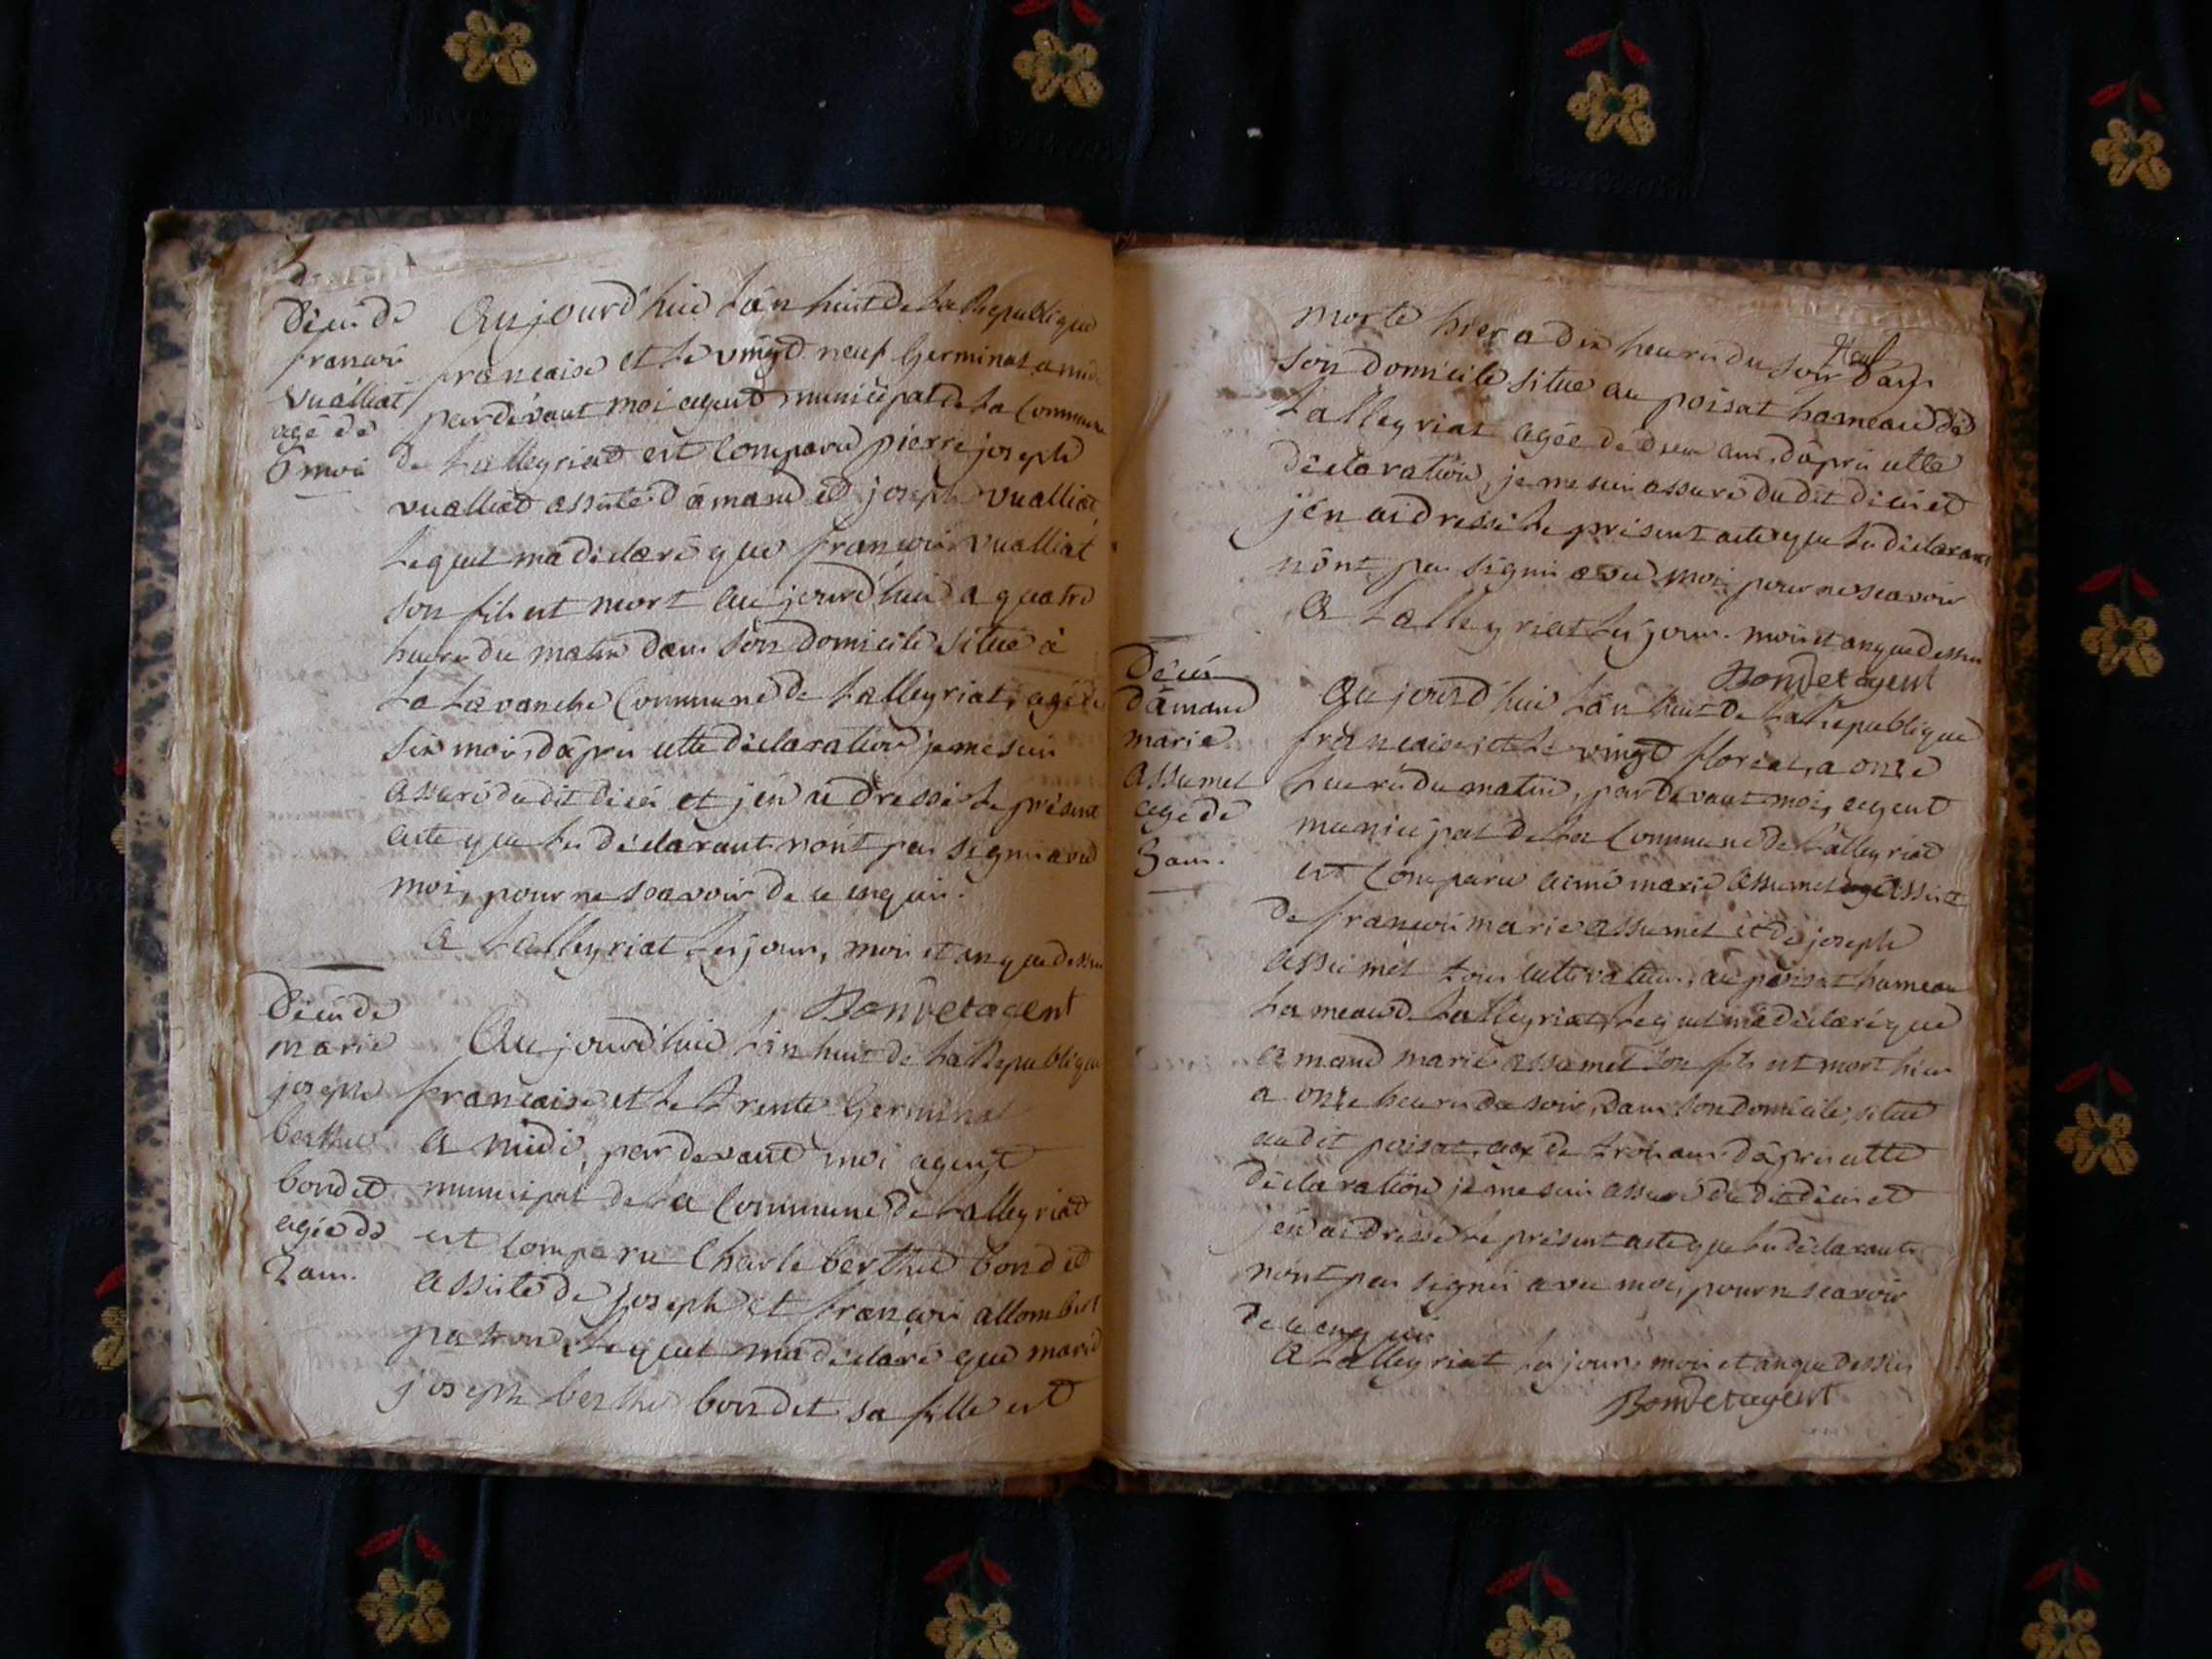 Décès de
francois
vualliat
agé de
6 mois
Aujourd'hui L'an huit de La Republique
francaise et Le vingt neuf Germinal a midi
pardevant moi agent municipal de La Commune
de Lalleyriat est Comparu pierre joseph
vualliat assisté d'amand et joseph vualliat
Lequel m'a déclaré que francois vualliat
son fils est mort aujourd'hui a quatre
heures du matin dans son domicile situé à
La Lavanche Commune de Lalleyriat, agé de
six mois, d'après cette déclaration je me suis
assuré dudit décés et j'en ai dressé Le présent
acte que Les déclarants n'ont pas signé avec
moi, pour ne scavoir de ce enquis.
A Lalleyriat Les jour, mois et an que dessus
Bondet agent
Décés de
marie
joseph
berthet
bondet
agée de
2 ans.
Aujourd'hui L'an huit de La Republique
francaise et Le trente Germinal
A midi, pardevant moi agent
municipal de La Commune de Lalleyriat
est Comparu Charle berthet bondet
assisté de joseph et francois allombert
Lequel m'a déclaré que marie
joseph berthet bondet sa fille est
morte hier a dix heures du soir dans
Neuf
son domicile situé au poisat hameau de
Lalleyriat agée de deux ans, d'après cette
déclaration, je me suis assuré dudit décés et
j'en ai dressé Le présent acte que Les déclarants
n'ont pas signé avec moi pour ne scavoir
A Lalleyriat Les jour. mois et an que dessus
Bondet agent
Décés
d'amand
marie
Assumel
agé de
3 ans.
Aujourd'hui L'an huit de La Republique
francaise, et Le vingt floréal, a onze
heures du matin, pardevant moi, agent
municipal de La Commune de Lalleyriat
est Comparu aimé marie Assumel assisté
de francois marie assumel et de joseph
assumel tous cultivateurs, au poisat hameau
hameau de Lalleyriat, Lequel m'a déclaré que
amand marie assumel son fils est mort hier
a onze heures du soir, dans son domicile, situé
audit poisat, agé de trois ans. d'après cette
déclaration je me suis assuré dudit décés et
j'en ai dressé Le présent acte que Les déclarants
n'ont pas signé avec moi, pour ne scavoir
de ce enquis
A Lalleyriat Les jour, mois et an que dessus
Bondet agent